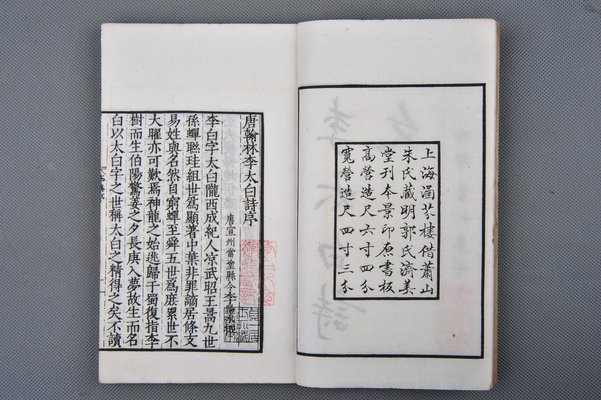 上海涵芬樓借蕭山
朱氏藏明郭氏濟美
堂刊本景印原書板
高營造尺六寸四分
寬營造尺四寸三分
唐翰林李太白詩序
唐宣州當塗縣令李陽冰撰
李白字太白隴西成紀人涼武昭王暠九世
孫蟬聯珪組世爲顯著中葉非罪謫居條支
易姓與名然自窮蟬至舜五世爲庶累世不
大曜亦可歎焉神龍之始逃歸于蜀復指李
樹而生伯陽驚姜之夕長庚入夢故生而名
白以太白字之世稱太白之精得之矣不讀